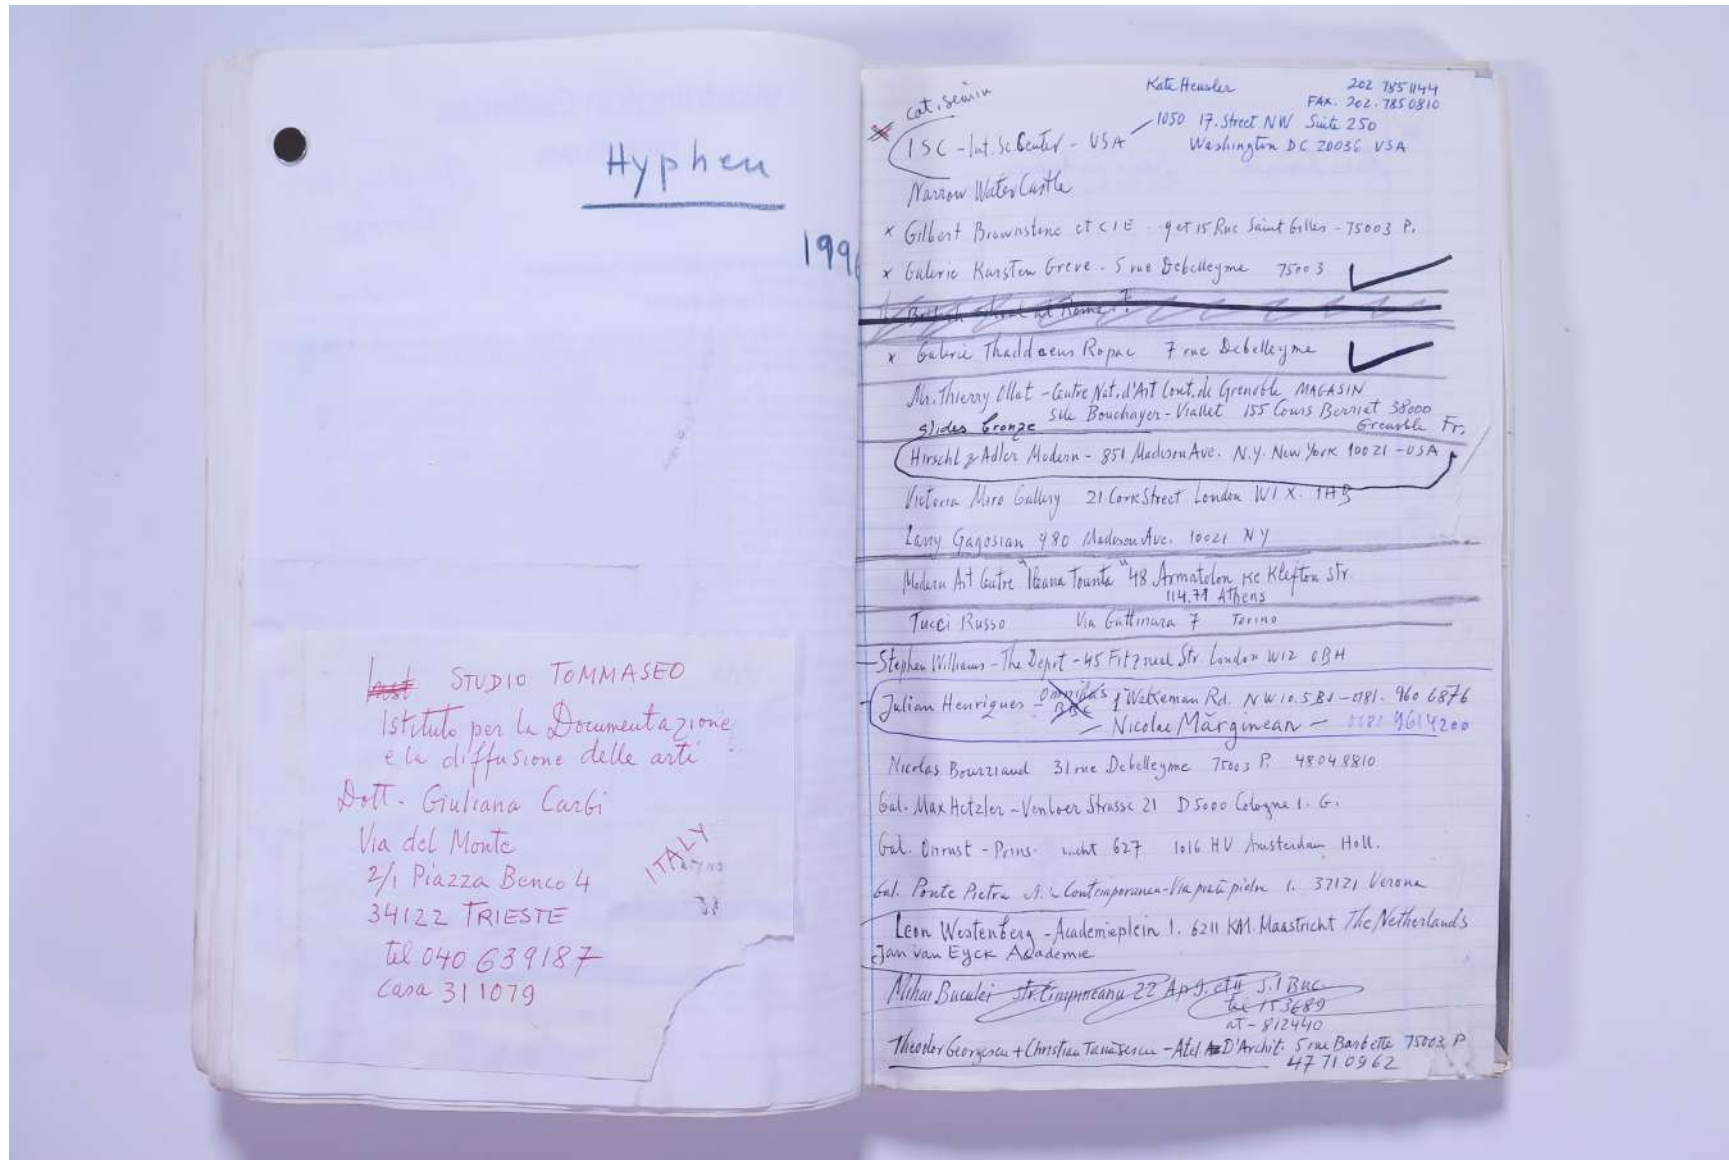 Hyphen
199
STUDIO TOMMASEO
Istituto per la Documentazione
e la diffusione delle arti
Dott. Giuliana Carbi
Via del Monte
2/1 Piazza Benco 4
34122 TRIESTE
tel 040 639187
casa 311079
ITALY
cat. semin
Kate Heusler 202 7851144
FAX. 202. 7850810
ISC - Int. Sc. Center - USA 1050 17. Street NW Suite 250
Washington DC 20036 USA
Narrow Water Castle
x Gilbert Brownstone et CIE 9 et 15 Rue Saint Gilles - 75003 P.
x Galerie Karsten Greve - 5 rue Debelleyme 75003
at Rome?
x Galerie Thaddaeus Ropac 7 rue Debelleyme
Mr. Thierry Ollat - Centre Nat. d'Art Cont. de Grenoble MAGASIN
Site Bouchayer-Viallet 155 Cours Berriat 38000
Grenoble Fr.
slides bronze
Hirschl & Adler Modern - 851 Madison Ave. N.Y. New York 10021 - USA
Victoria Miro Gallery 21 Cork Street London W1X. 1HB
Larry Gagosian 980 Madison Ave. 10021 NY
Modern Art Centre "Ileana Tounta" 48 Armatolon Ke Klefton Str.
114.71 Athens
Tucci Russo Via Gattinara 7 Torino
Stephen Williams - The Depot - 45 Fitzneal Str London W12 0BH
Julian Henriques - BBC 1 Wakeman Rd. NW10.5BJ - 0181. 960 6876
- Nicolae Mărginean - 0181 9614200
Nicolas Bourriaud 31 rue Debelleyme 75003 P. 48048810
Gal. Max Hetzler - Venloer Strasse 21 D5000 Cologne 1. G.
Gal. Onrust - Prins 627 1016 HV Amsterdam Holl.
Gal. Ponte Pietra Contemporanea - Via 1. 37121 Verona
Leon Westenberg - Academieplein 1. 6211 KM. Maastricht The Netherlands
Jan van Eyck Academie
Mihai Buculei str. Cimpineanu 22 Ap 9. et II S.1 Buc.
153689
at - 812440
Theodor Georgescu + Christian Tanasescu - Atel D'Archit. 5 rue Barbette 75003 P
47710962